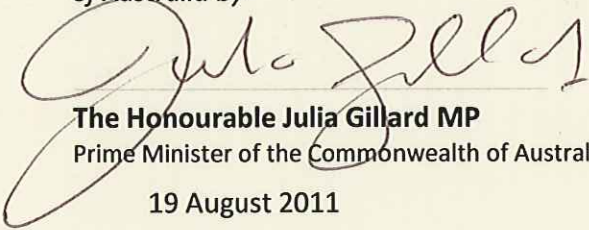 of Australia by
Julia Gillard
The Honourable Julia Gillard MP
Prime Minister of the Commonwealth of Austral
19 August 2011